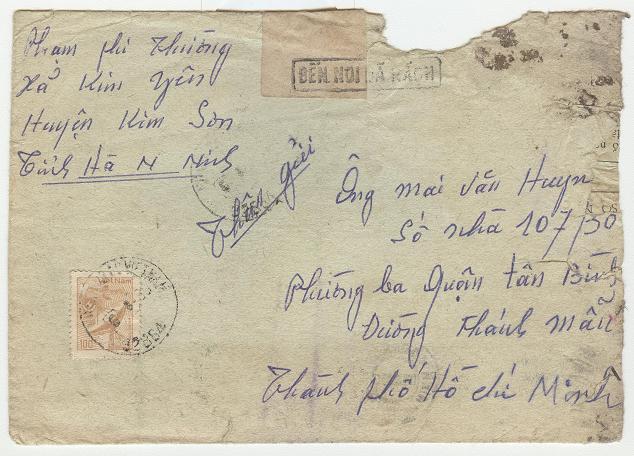 Phạm phi Thường
Xã Kim Yên
Huyện Kim Sơn
Tỉnh Hà N Ninh
ĐẾN NƠI ĐÃ RÁCH
Thân gửi
Ông mai văn Huyn
Số nhà 107/30
Phường ba Quận tân Bình
Đường Thánh mẫu
Thành phố Hồ chí Minh
VIETNAM
100